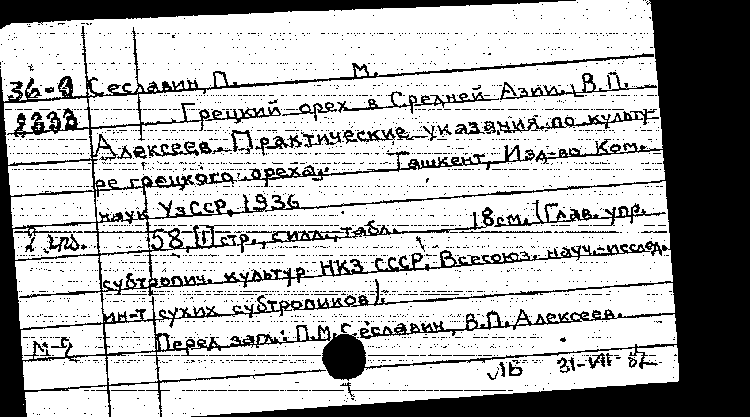 36-9 Сеславин, П. М.
2333 Грецкий орех в Средней Азии. В.П.
Алексеев. Практические указания по культу-
ре грецкого ореха. Ташкент, Изд-во Ком.
наук УзССР, 1936
2 экз. 58, [1] стр., с илл., табл. 18см. (Глав. упр.
субтропич. культур НКЗ СССР. Всесоюз. науч.-исслед.
ин-т сухих субтропиков).
М-2 Перед загл.: П.М. Сеславин, В.П. Алексеев.